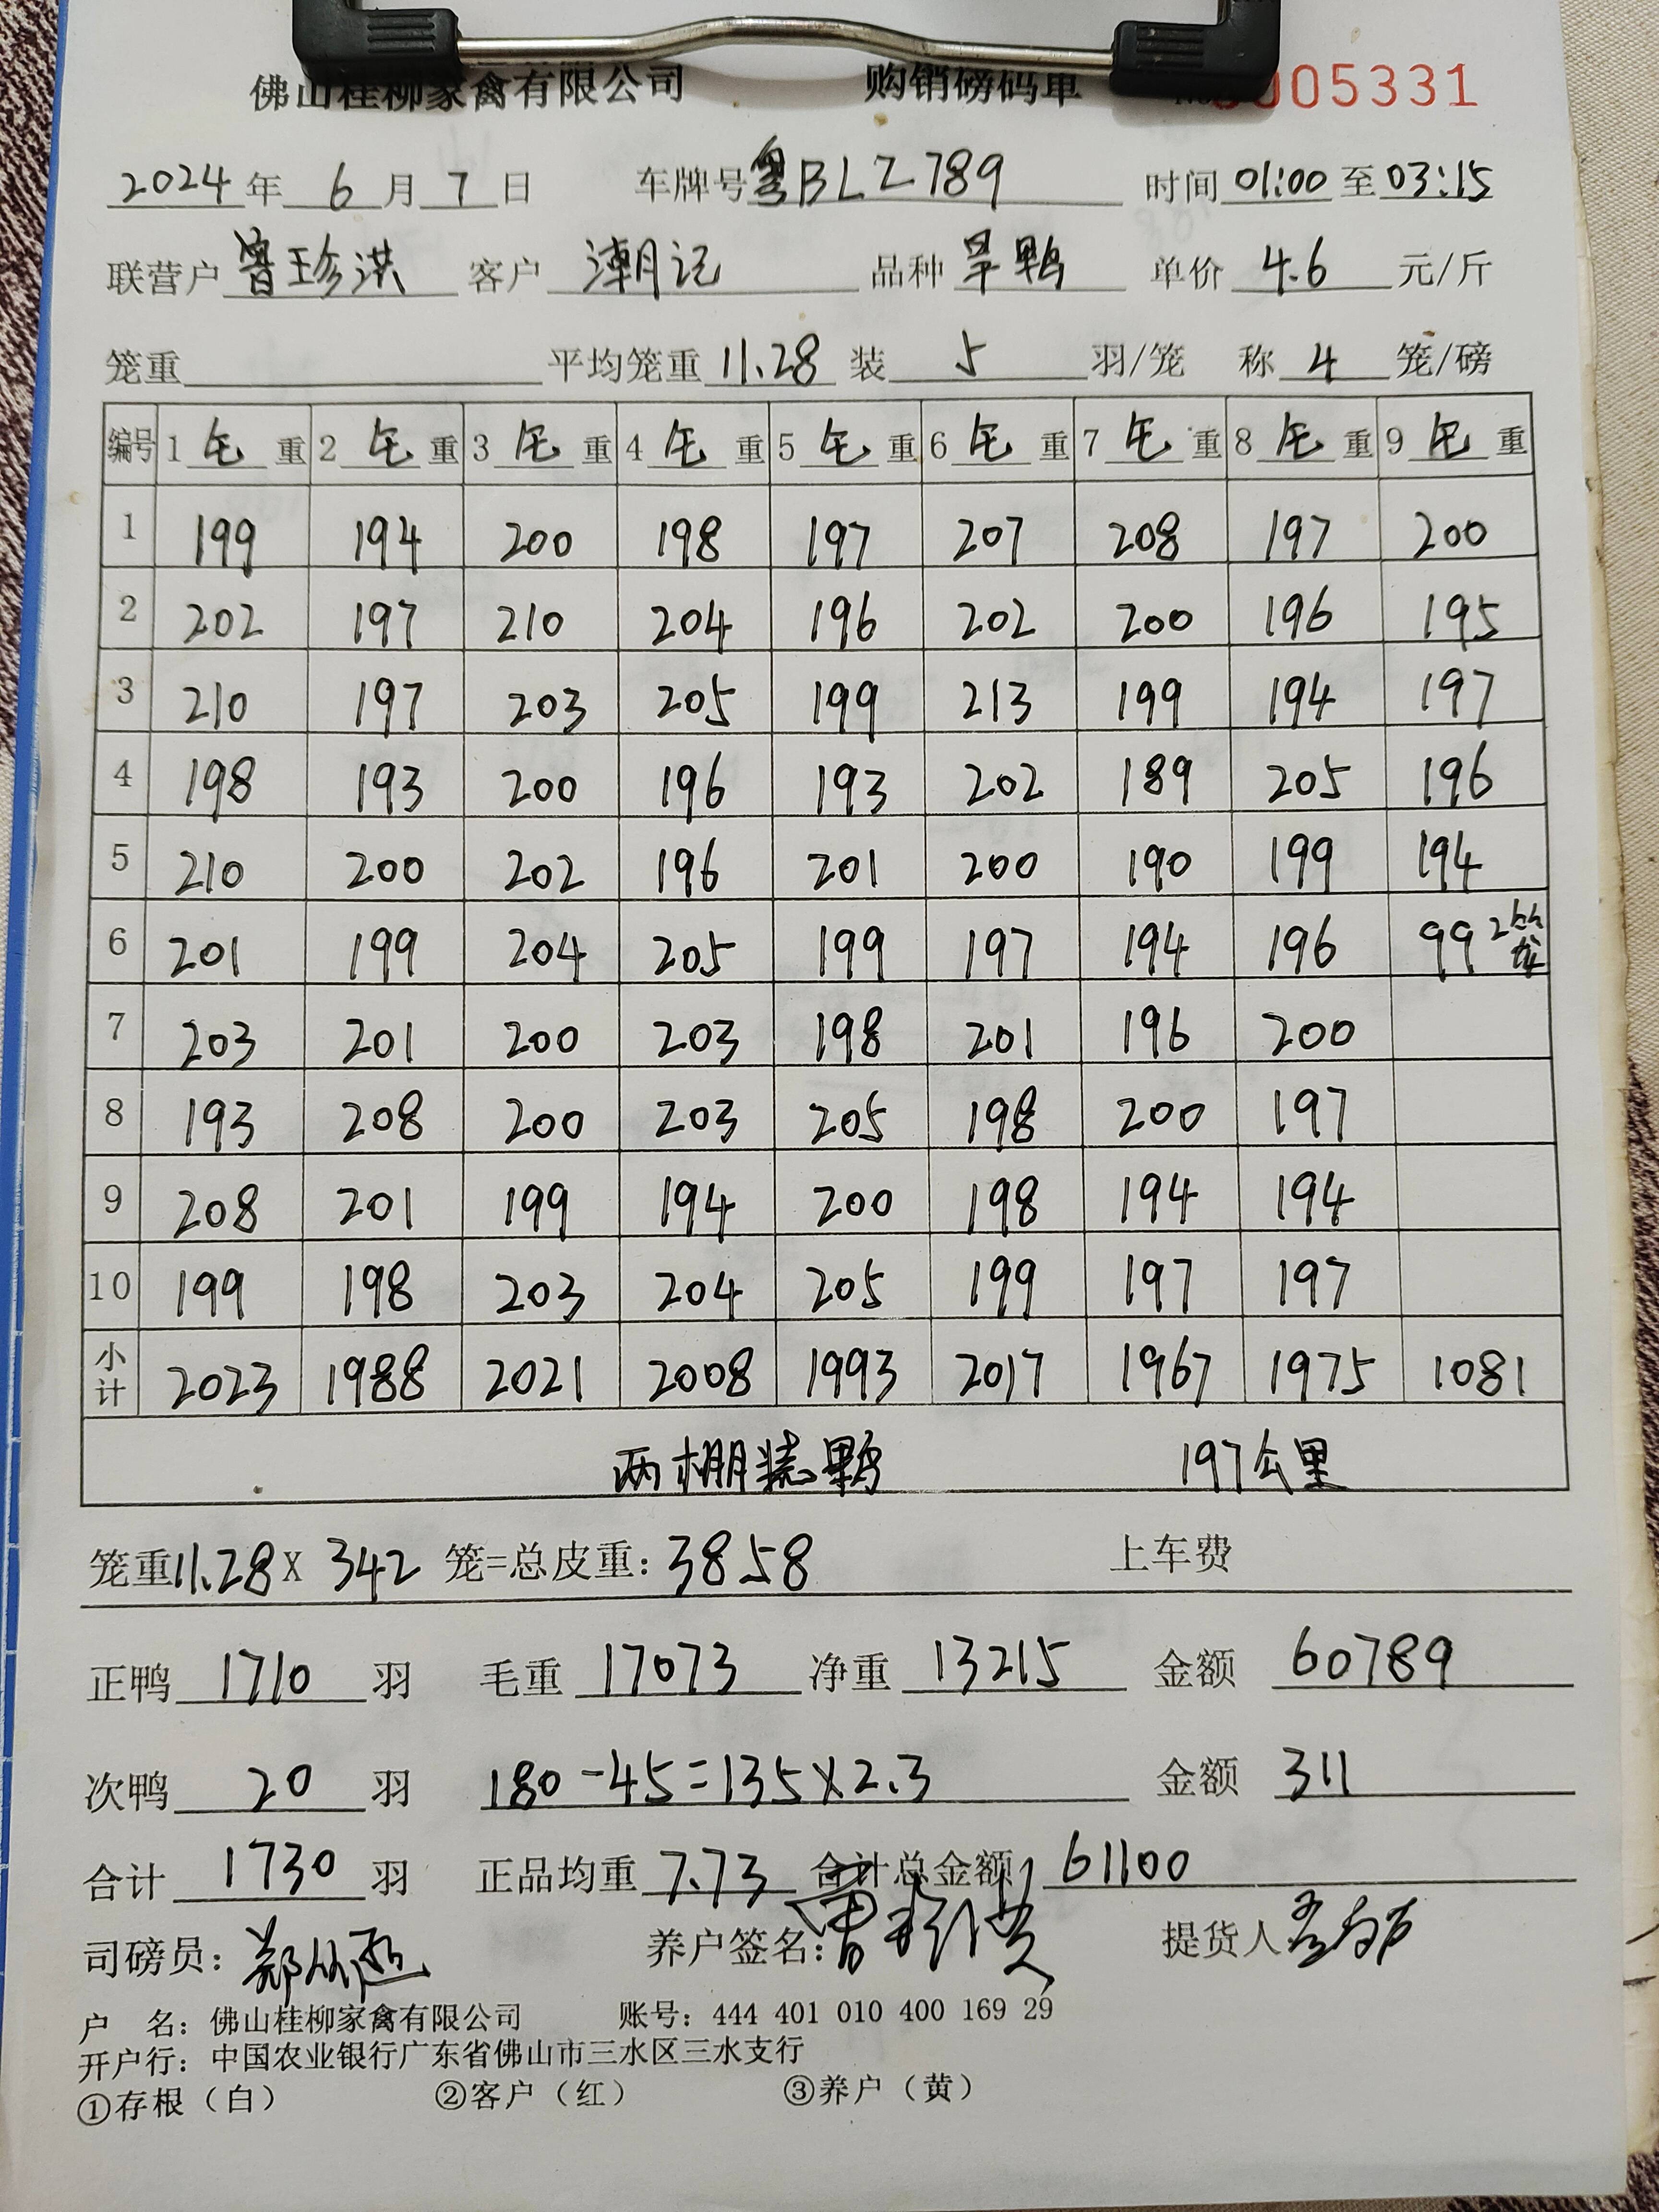 佛山桂柳家禽有限公司 购销磅码单 005331
2024年6月7日 车牌号粤BLZ789 时间01:00至03:15
联营户曾珍洪 客户潮记 品种旱鸭 单价4.6元/斤
笼重 平均笼重11.28 装5羽/笼 称4笼/磅
编号 1毛重 2毛重 3毛重 4毛重 5毛重 6毛重 7毛重 8毛重 9毛重
1 199 194 200 198 197 207 208 197 200
2 202 197 210 204 196 202 200 196 195
3 210 197 203 205 199 213 199 194 197
4 198 193 200 196 193 202 189 205 196
5 210 200 202 196 201 200 190 199 194
6 201 199 204 205 199 197 194 196 99 2笼
7 203 201 200 203 198 201 196 200
8 193 208 200 203 205 198 200 197
9 208 201 199 194 200 198 194 194
10 199 198 203 204 205 199 197 197
小计 2023 1988 2021 2008 1993 2017 1967 1975 1081
两棚装鸭 197公里
笼重11.28X342笼=总皮重:3858 上车费
正鸭1710羽 毛重17073 净重13215 金额60789
次鸭20羽 180-45=135X2.3 金额311
合计1730羽 正品均重7.73 合计总金额61100
司磅员: 养户签名: 提货人
户 名:佛山桂柳家禽有限公司 账号:444 401 010 400 169 29
开户行:中国农业银行广东省佛山市三水区三水支行
①存根(白) ②客户(红) ③养户(黄)